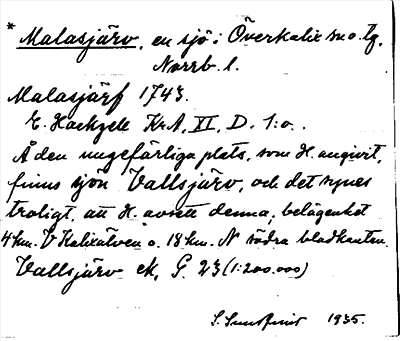 * Malasjärv, en sjö i Överkalix sn o. tg,
Norrb. l.
Malasjärf 1743.
E. Hackzell KrA, XI, D. 1:a.
Å den ungefärliga plats, som H. angivit,
finns sjön Vallsjärv, och det synes
troligt, att H. avsett denna, belägenhet
4 km. V Kalixälven o. 18 km. N södra bladkanten.
Vallsjärv ek. G. 23 (1:200.000)
1935.